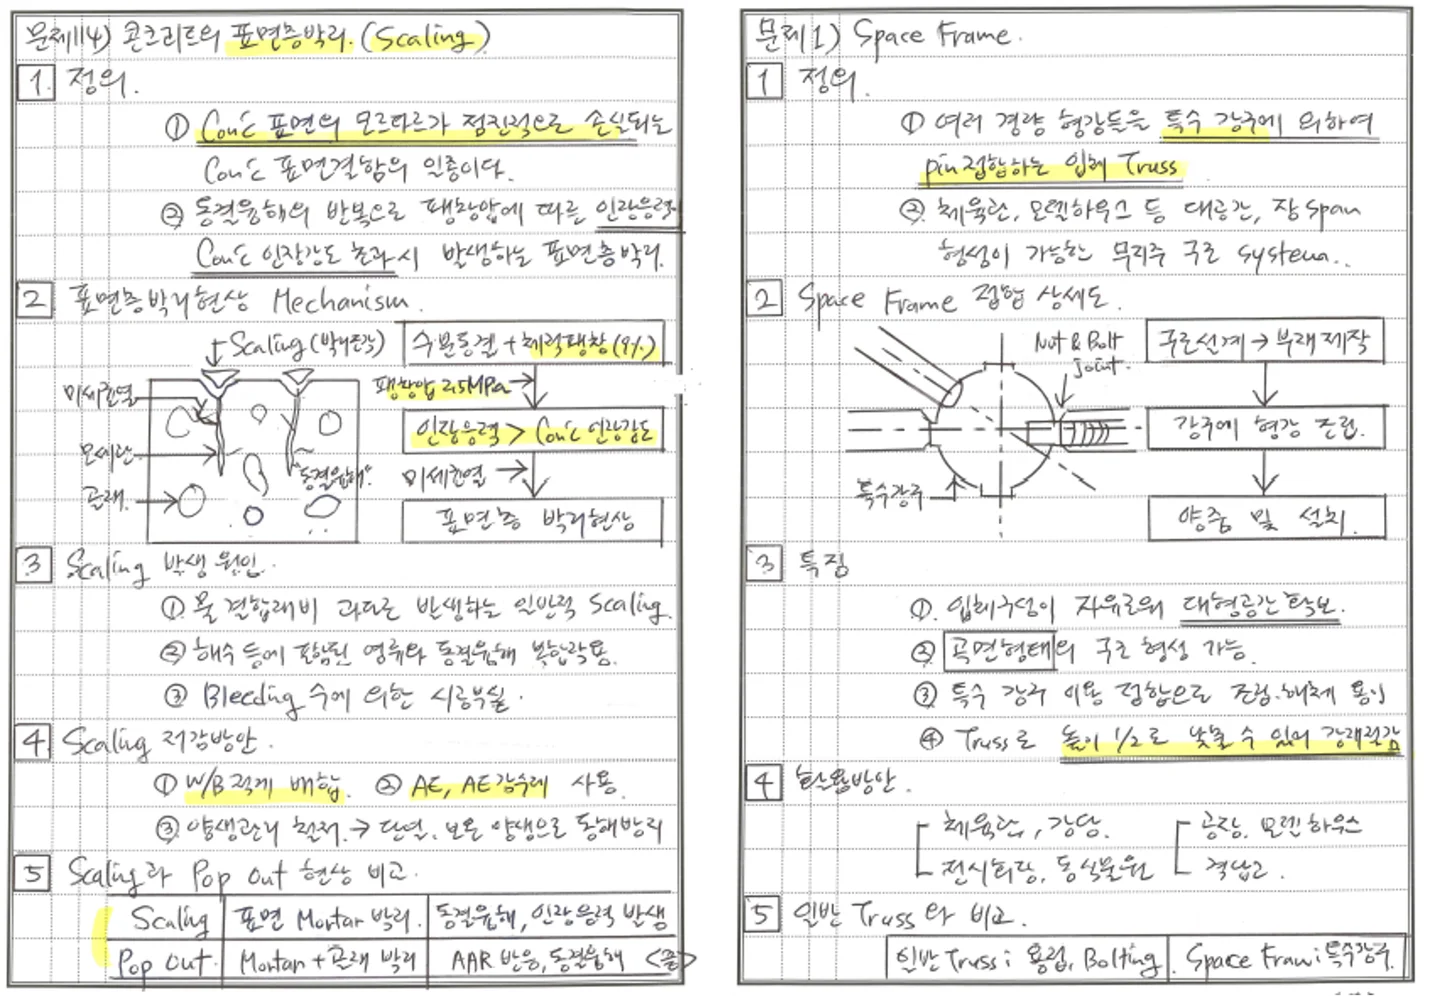 문제14) 콘크리트의 표면층박리. (Scaling)
1. 정의.
① Con'c 표면의 모르타르가 점진적으로 손실되는
Con'c 표면결함의 일종이다.
② 동결융해의 반복으로 팽창압에 따른 인장응력이
Con'c 인장강도 초과시 발생하는 표면층박리.
2 표면층박리현상 Mechanism.
Scaling (박리조각)
미세균열
모세관
골재
"동결융해"
수분동결 + 체적팽창(9%)
팽창압 2.5MPa
인장응력 > Con'c 인장강도
미세균열
표면층 박리현상
3 Scaling 발생 원인.
① 물 결합재비 과다로 발생하는 일반적 Scaling.
② 해수 등에 포함된 염류와 동결융해 복합작용.
③ Bleeding 수에 의한 시공부실.
4. Scaling 저감방안.
① W/B 적게 배합. ② AE, AE감수제 사용.
③ 양생관리 철저. → 단열, 보온 양생으로 동해방지
5 Scaling과 Pop Out 현상 비교.
Scaling 표면 Mortar 박리. 동결융해, 인장응력 발생
Pop Out. Mortar + 골재 박리 AAR 반응, 동결융해 <끝>
문제1) Space Frame.
1 정의.
① 여러 경량 형강들을 특수 강구에 의하여
pin 접합하는 입체 Truss
② 체육관, 모델하우스 등 대공간, 장 Span
형성이 가능한 무지주 구조 System..
2 Space Frame 접합 상세도.
Nut & Bolt
Joint.
특수강구
구조설계 → 부재제작
강구에 형강 조립.
양중 및 설치.
3 특징
①. 입체구성이 자유로워 대형공간 확보.
② 곡면형태의 구조 형성 가능.
③ 특수 강구 이용 접합으로 조립·해체 용이
④ Truss로 높이 1/2로 낮출 수 있어 강재절감
4 활용방안.
체육관, 강당. 공장, 모델하우스
전시회장, 동식물원 격납고.
5 일반 Truss 와 비교.
일반 Truss : 용접, Bolting. Space Fram : 특수강구.